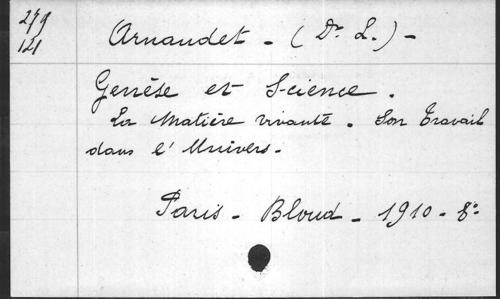 279
121
Arnaudet - (Dr L.) -
Genèse et Science.
La Matière vivante. Son Travail
dans l'Univers.
Paris - Bloud - 1910 - 8°